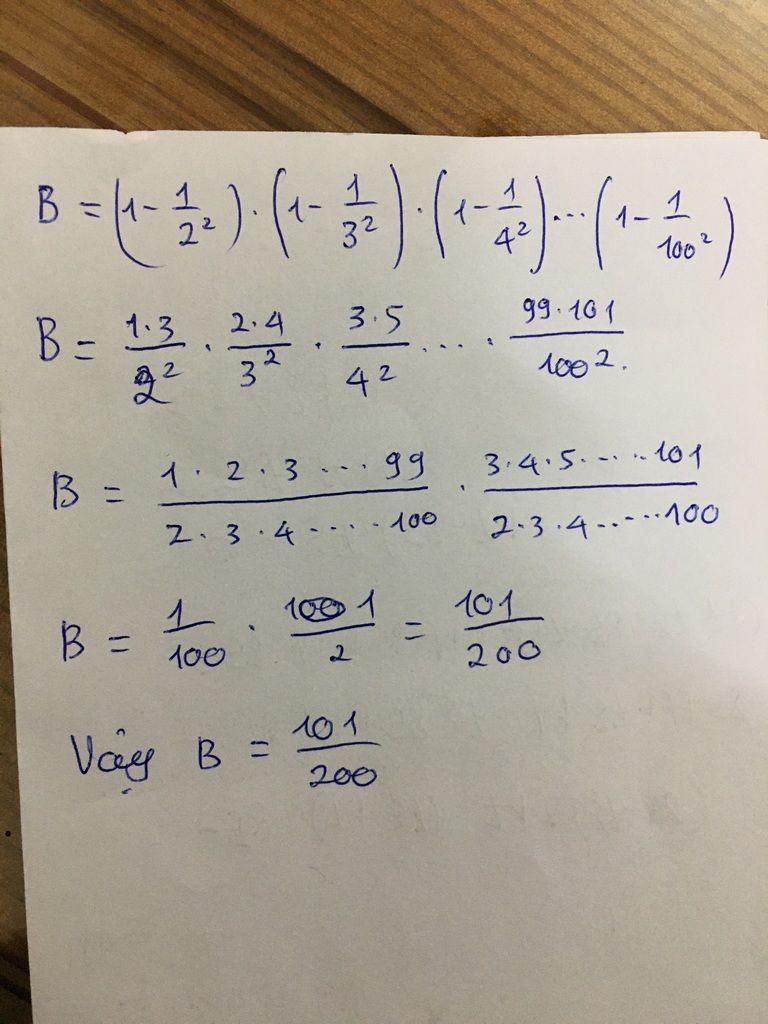 B = (1 - 1/2²) · (1 - 1/3²) · (1 - 1/4²) ... (1 - 1/100²)
B = 1·3/2² · 2·4/3² · 3·5/4² ... · 99·101/100².
B = 1·2·3...99/2·3·4.....100 · 3·4·5.....101/2·3·4.....100
B = 1/100 · 101/2 = 101/200
Vậy B = 101/200